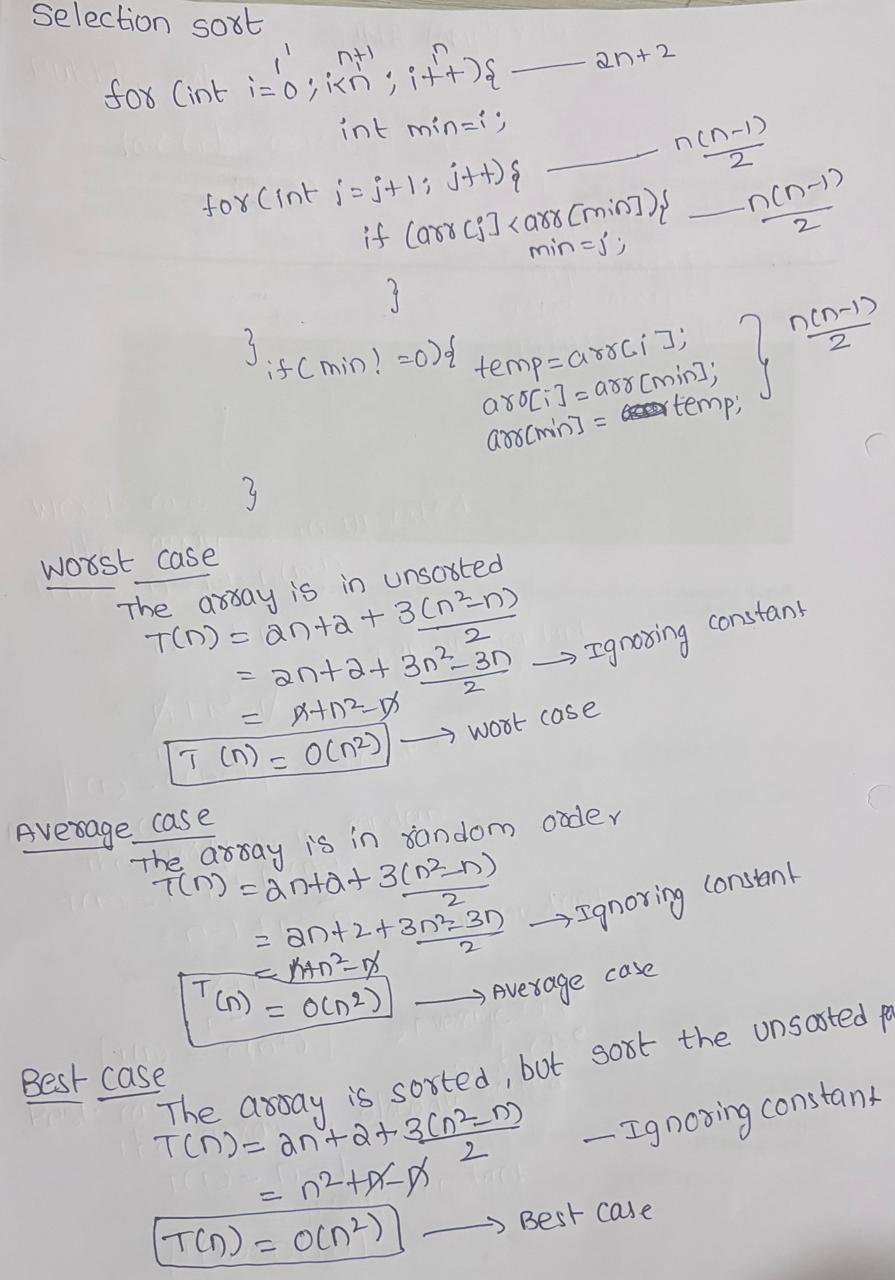 Selection sort
1 n+1 n
for (int i=0; i<n; i++){ — 2n+2
int min=i;
for(int j=j+1; j++){ — n(n-1)/2
if (arr[j]<arr[min]){ — n(n-1)/2
min=j;
}
} if(min!=0){ temp=arr[i];
arr[i]=arr[min]; } n(n-1)/2
arr[min]= temp;
}
Worst case
The array is in unsorted
T(n) = 2n+2+3(n²-n)/2
= 2n+2+3n²-3n/2 → Ignoring constant
= n+n²-n
T(n) = O(n²) → wort case
Average case
The array is in random order
T(n) = 2n+2+3(n²-n)/2
= 2n+2+3n²-3n/2 → Ignoring constant
= n+n²-n
T(n) = O(n²) → Average case
Best case
The array is sorted, but sort the unsorted pa
T(n) = 2n+2+3(n²-n)/2 — Ignoring constant
= n²+n-n
T(n) = O(n²) → Best case